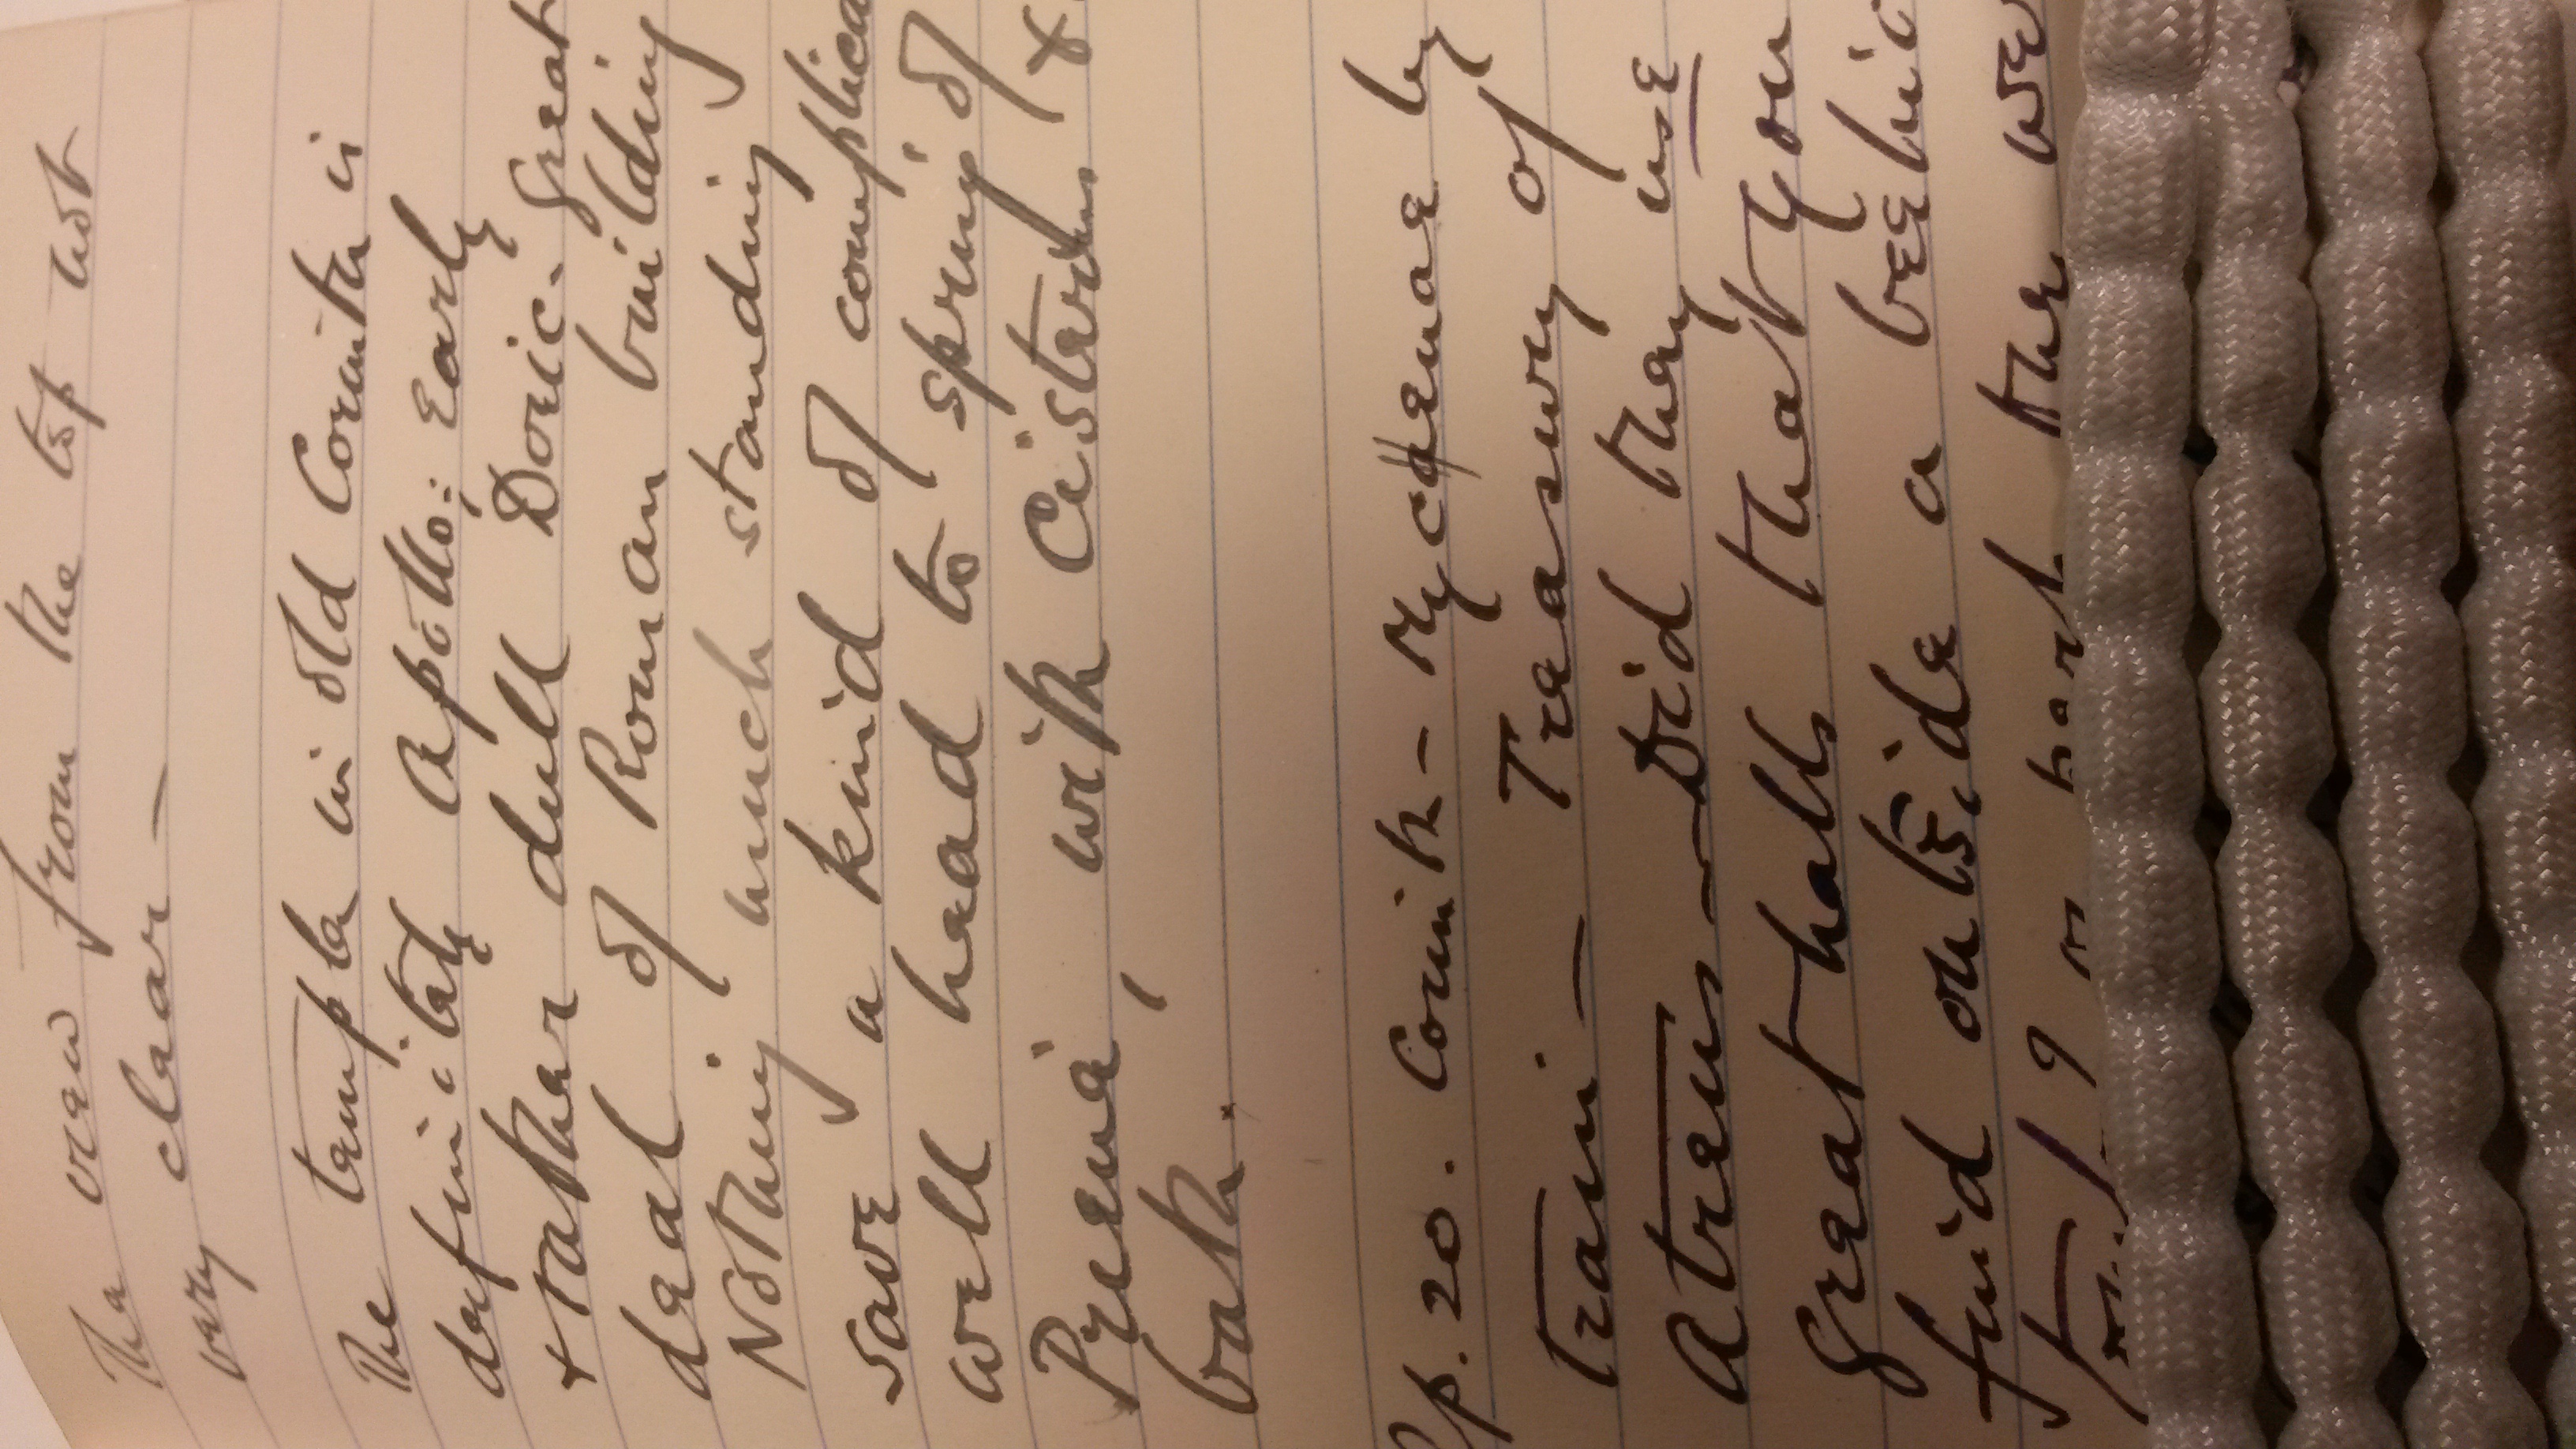 The view from the top not
very clear —
The temple in old Corinth is
definitely Apollo: Early
+ rather dull Doric. Great
deal of Roman building
Nothing much standing
save a kind of complica
well head to spring of
Pirena, with Cistern &
bath.
Ap. 20. Corinth – Mycenae by
train – Treasury of
Atreus – Did they use
great halls that you
find outside a beehive
the we